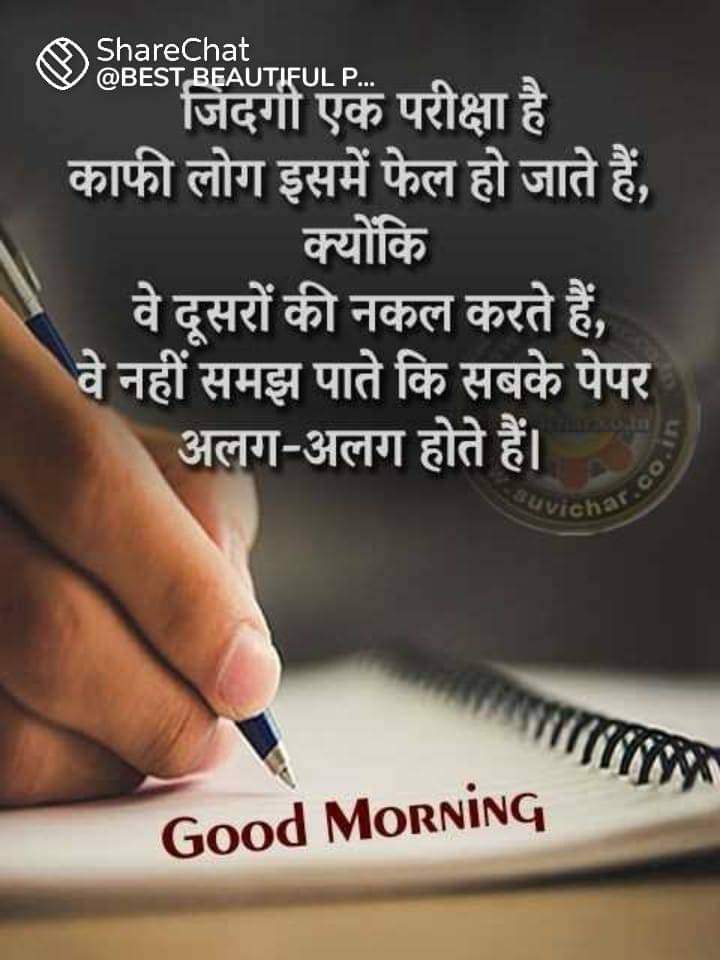 ShareChat
@BEST BEAUTIFUL P...
जिंदगी एक परीक्षा है
काफी लोग इसमें फेल हो जाते हैं,
क्योंकि
वे दूसरों की नकल करते हैं,
वे नहीं समझ पाते कि सबके पेपर
अलग-अलग होते हैं।
suvichar.co.in
Good Morning